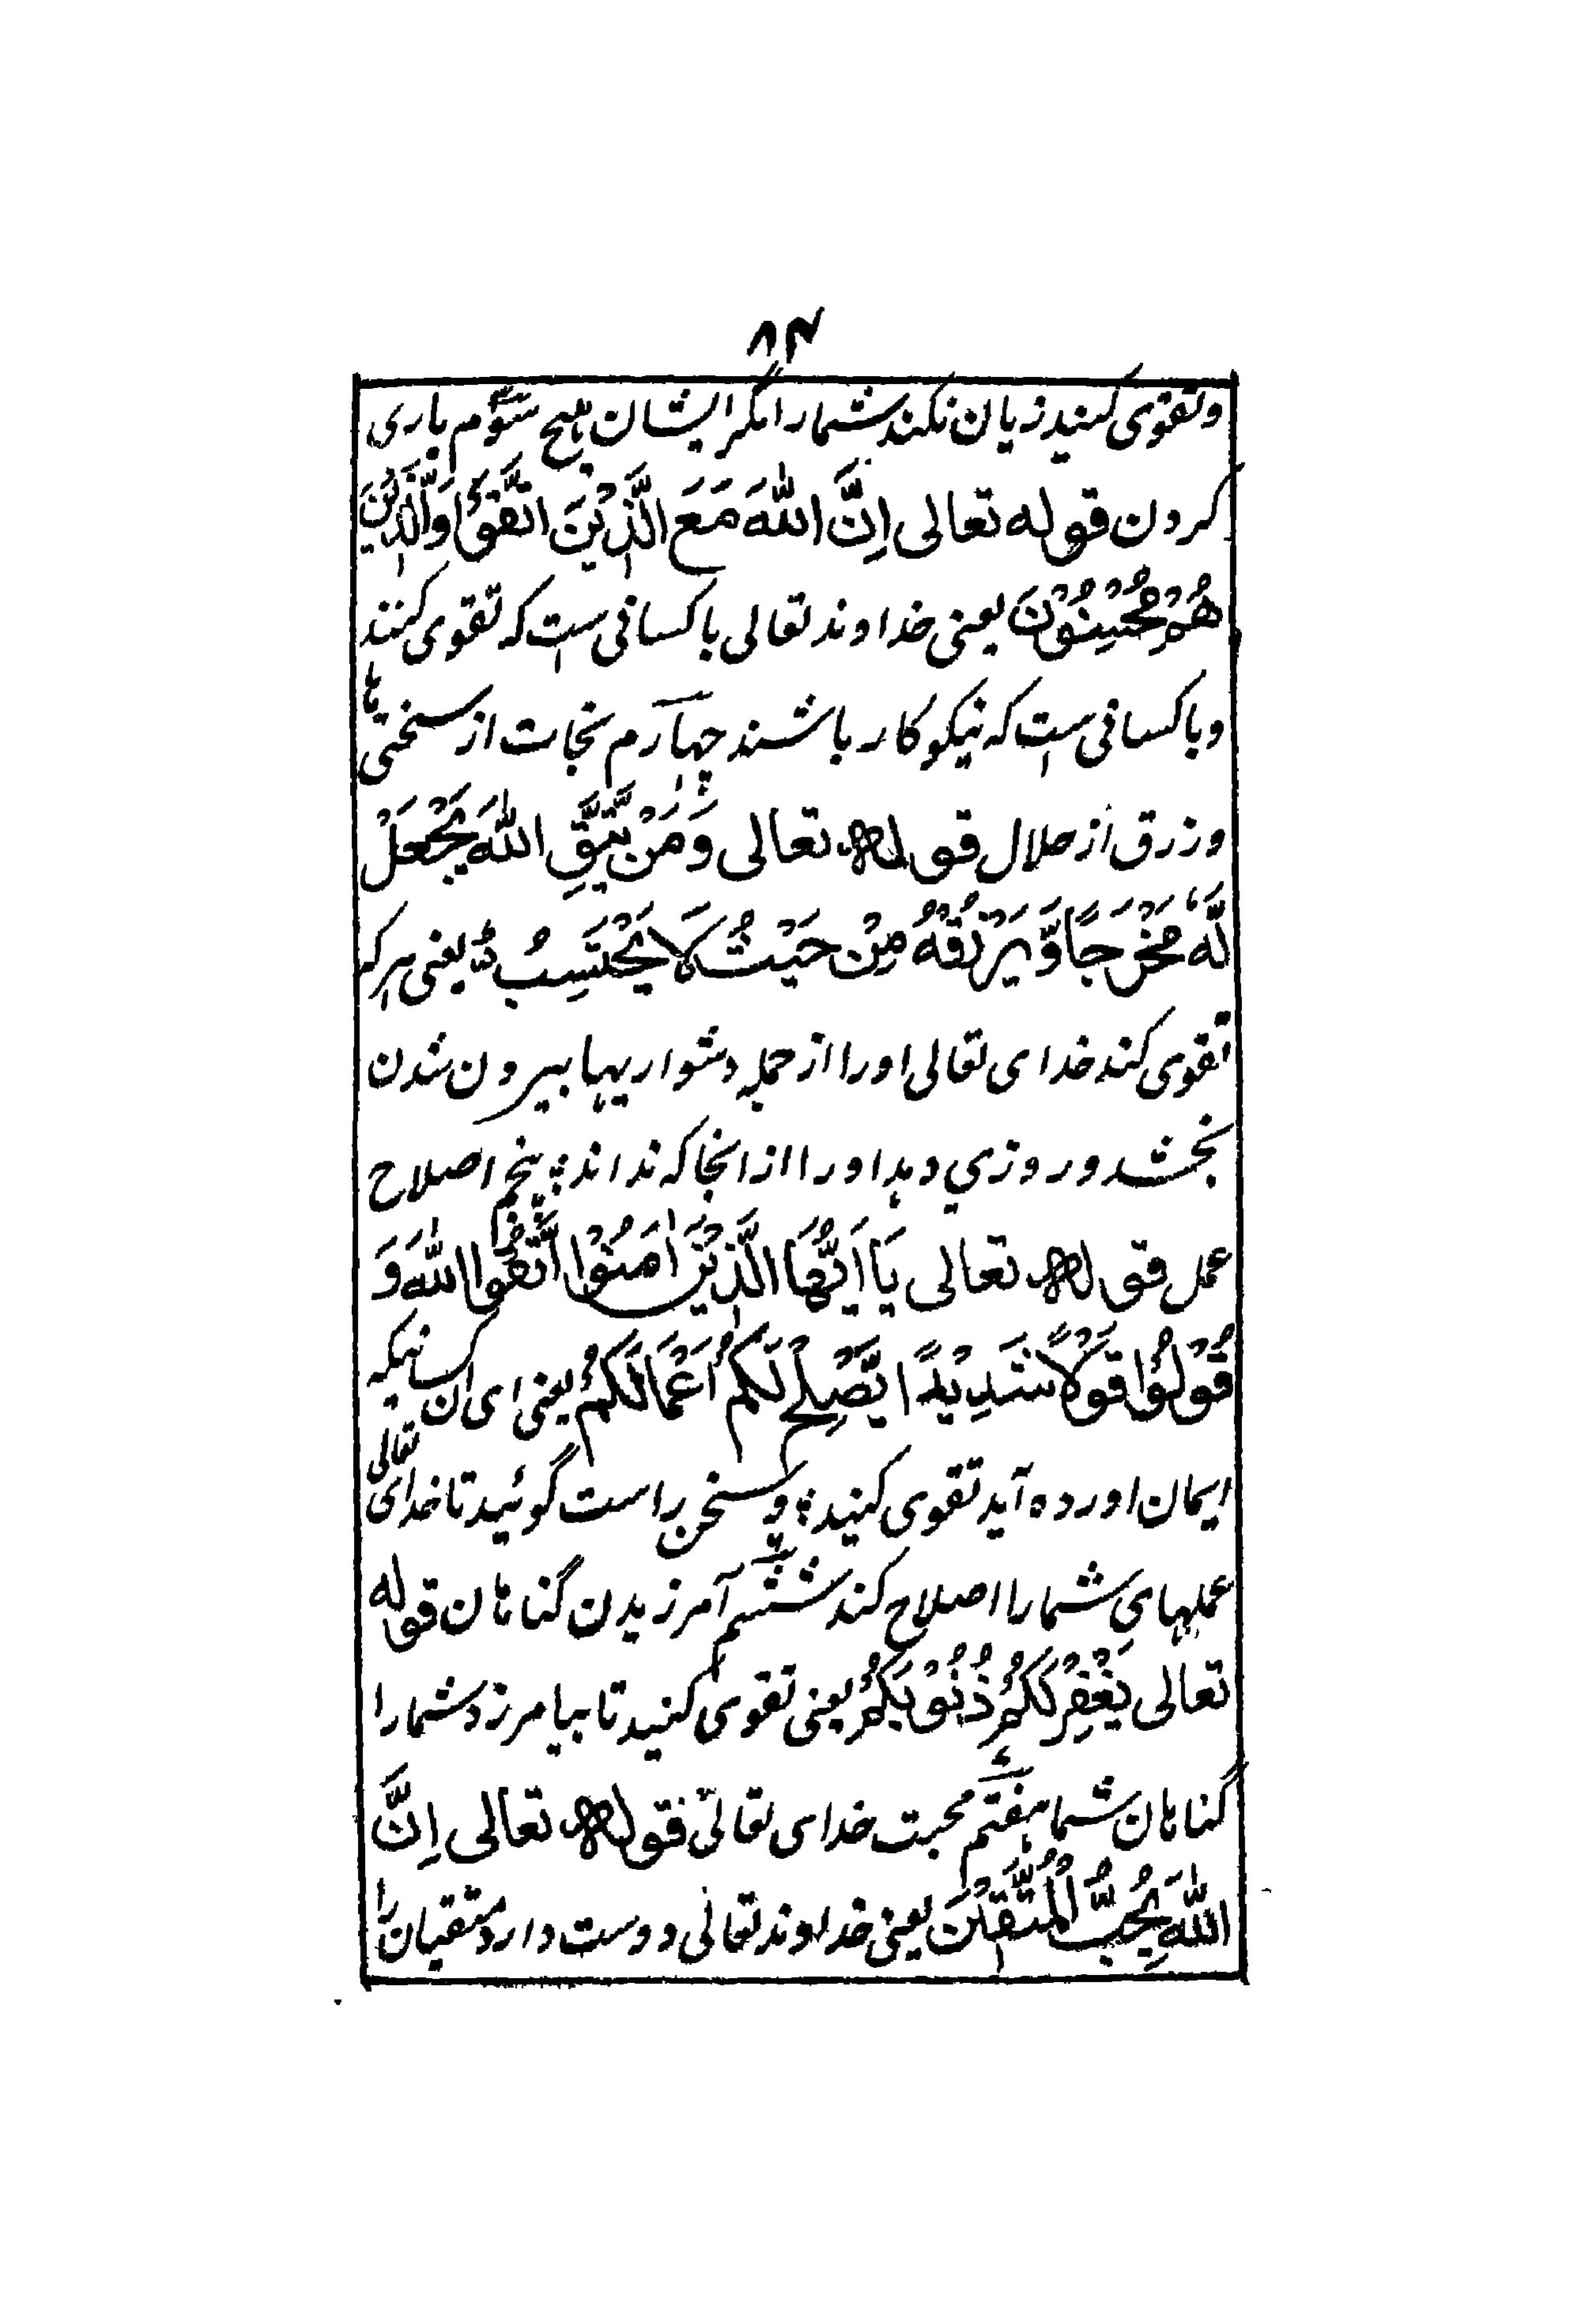 ۸۴
وتقوی کنید زیان نکند شمارا مکر ایشان هیچ سوّم یاری
کردن قوله تعالی اِنَّ اللّٰهَ مَعَ الَّذِیْنَ اتَّقَوْا وَالَّذِیْنَ
هُمْ مُحْسِنُوْنَ یعنی خداوند تعالی باکسانی ست که تقوی کنند
وباکسانی ست که نیکوکار باشند چهارم نجات از سختی ها
ورزق از حلال قوله تعالی وَمَنْ یَّتَّقِ اللّٰهَ یَجْعَلْ
لَّهٗ مَخْرَجًا وَّیَرْزُقْهُ مِنْ حَیْثُ لَا یَحْتَسِبُ یعنی هرکه
تقوی کند خدای تعالی اورا از جمله دشواریها بیرون شدن
بخشد وروزی دهد اورا از انجا که نداند پنجم اصلاح
عمل قوله تعالی یَا اَیُّهَا الَّذِیْنَ اٰمَنُوْا اتَّقُوا اللّٰهَ وَ
قُوْلُوْا قَوْلًا سَدِیْدًا یُّصْلِحْ لَکُمْ اَعْمَالَکُمْ یعنی ای ان کسانیکه
ایمان اورده آید تقوی کنید و سخن راست گوئید تا خدای تعالی
عملهای شمارا اصلاح کند ششم آمرزیدن گناهان قوله
تعالی یَغْفِرْ لَکُمْ ذُنُوْبَکُمْ یعنی تقوی کنید تا بیامرزد شمارا
گناهان شما هفتم محبت خدای تعالی قوله تعالی اِنَّ
اللّٰهَ یُحِبُّ الْمُتَّقِیْنَ یعنی خداوند تعالی دوست دارد متقیان را